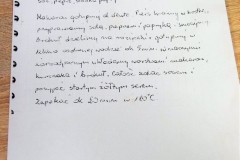 sól, pieprz,
Makaron gotujemy al dente. Pierś kroimy w kostkę,
przyprawiamy solą, pieprzem i papryką i smażymy.
Brokuł dzielimy na różyczki i gotujemy w
lekko osolonej wodzie ok 5 min. W naczyniu
żaroodpornym układamy warstwami makaron,
kurczaka i brokuł. Całość zalać sosem i
posypać startym żółtym serem.
Zapiekać ok min w 180°C